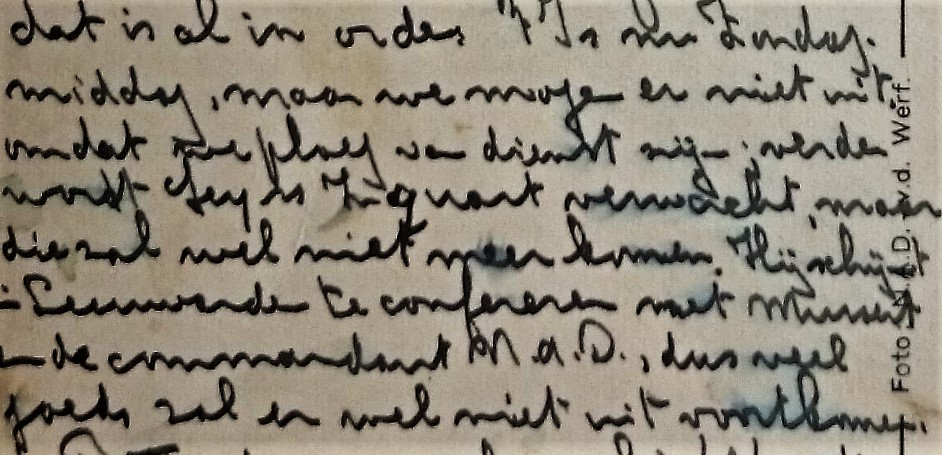 dat is al in orde. 't Is nu Zondag-
middag, maar we mogen er niet uit,
omdat we ploeg van dienst zijn; verder
wordt Seyss Inquart verwacht, maar
die zal wel niet meer komen. Hij schijnt
in Leeuwarden te confereren met Mussert
en de commandant N.A.D., dus veel
goeds zal er wel niet uit voortkomen.
Foto N.A.D. v.d. Werf.